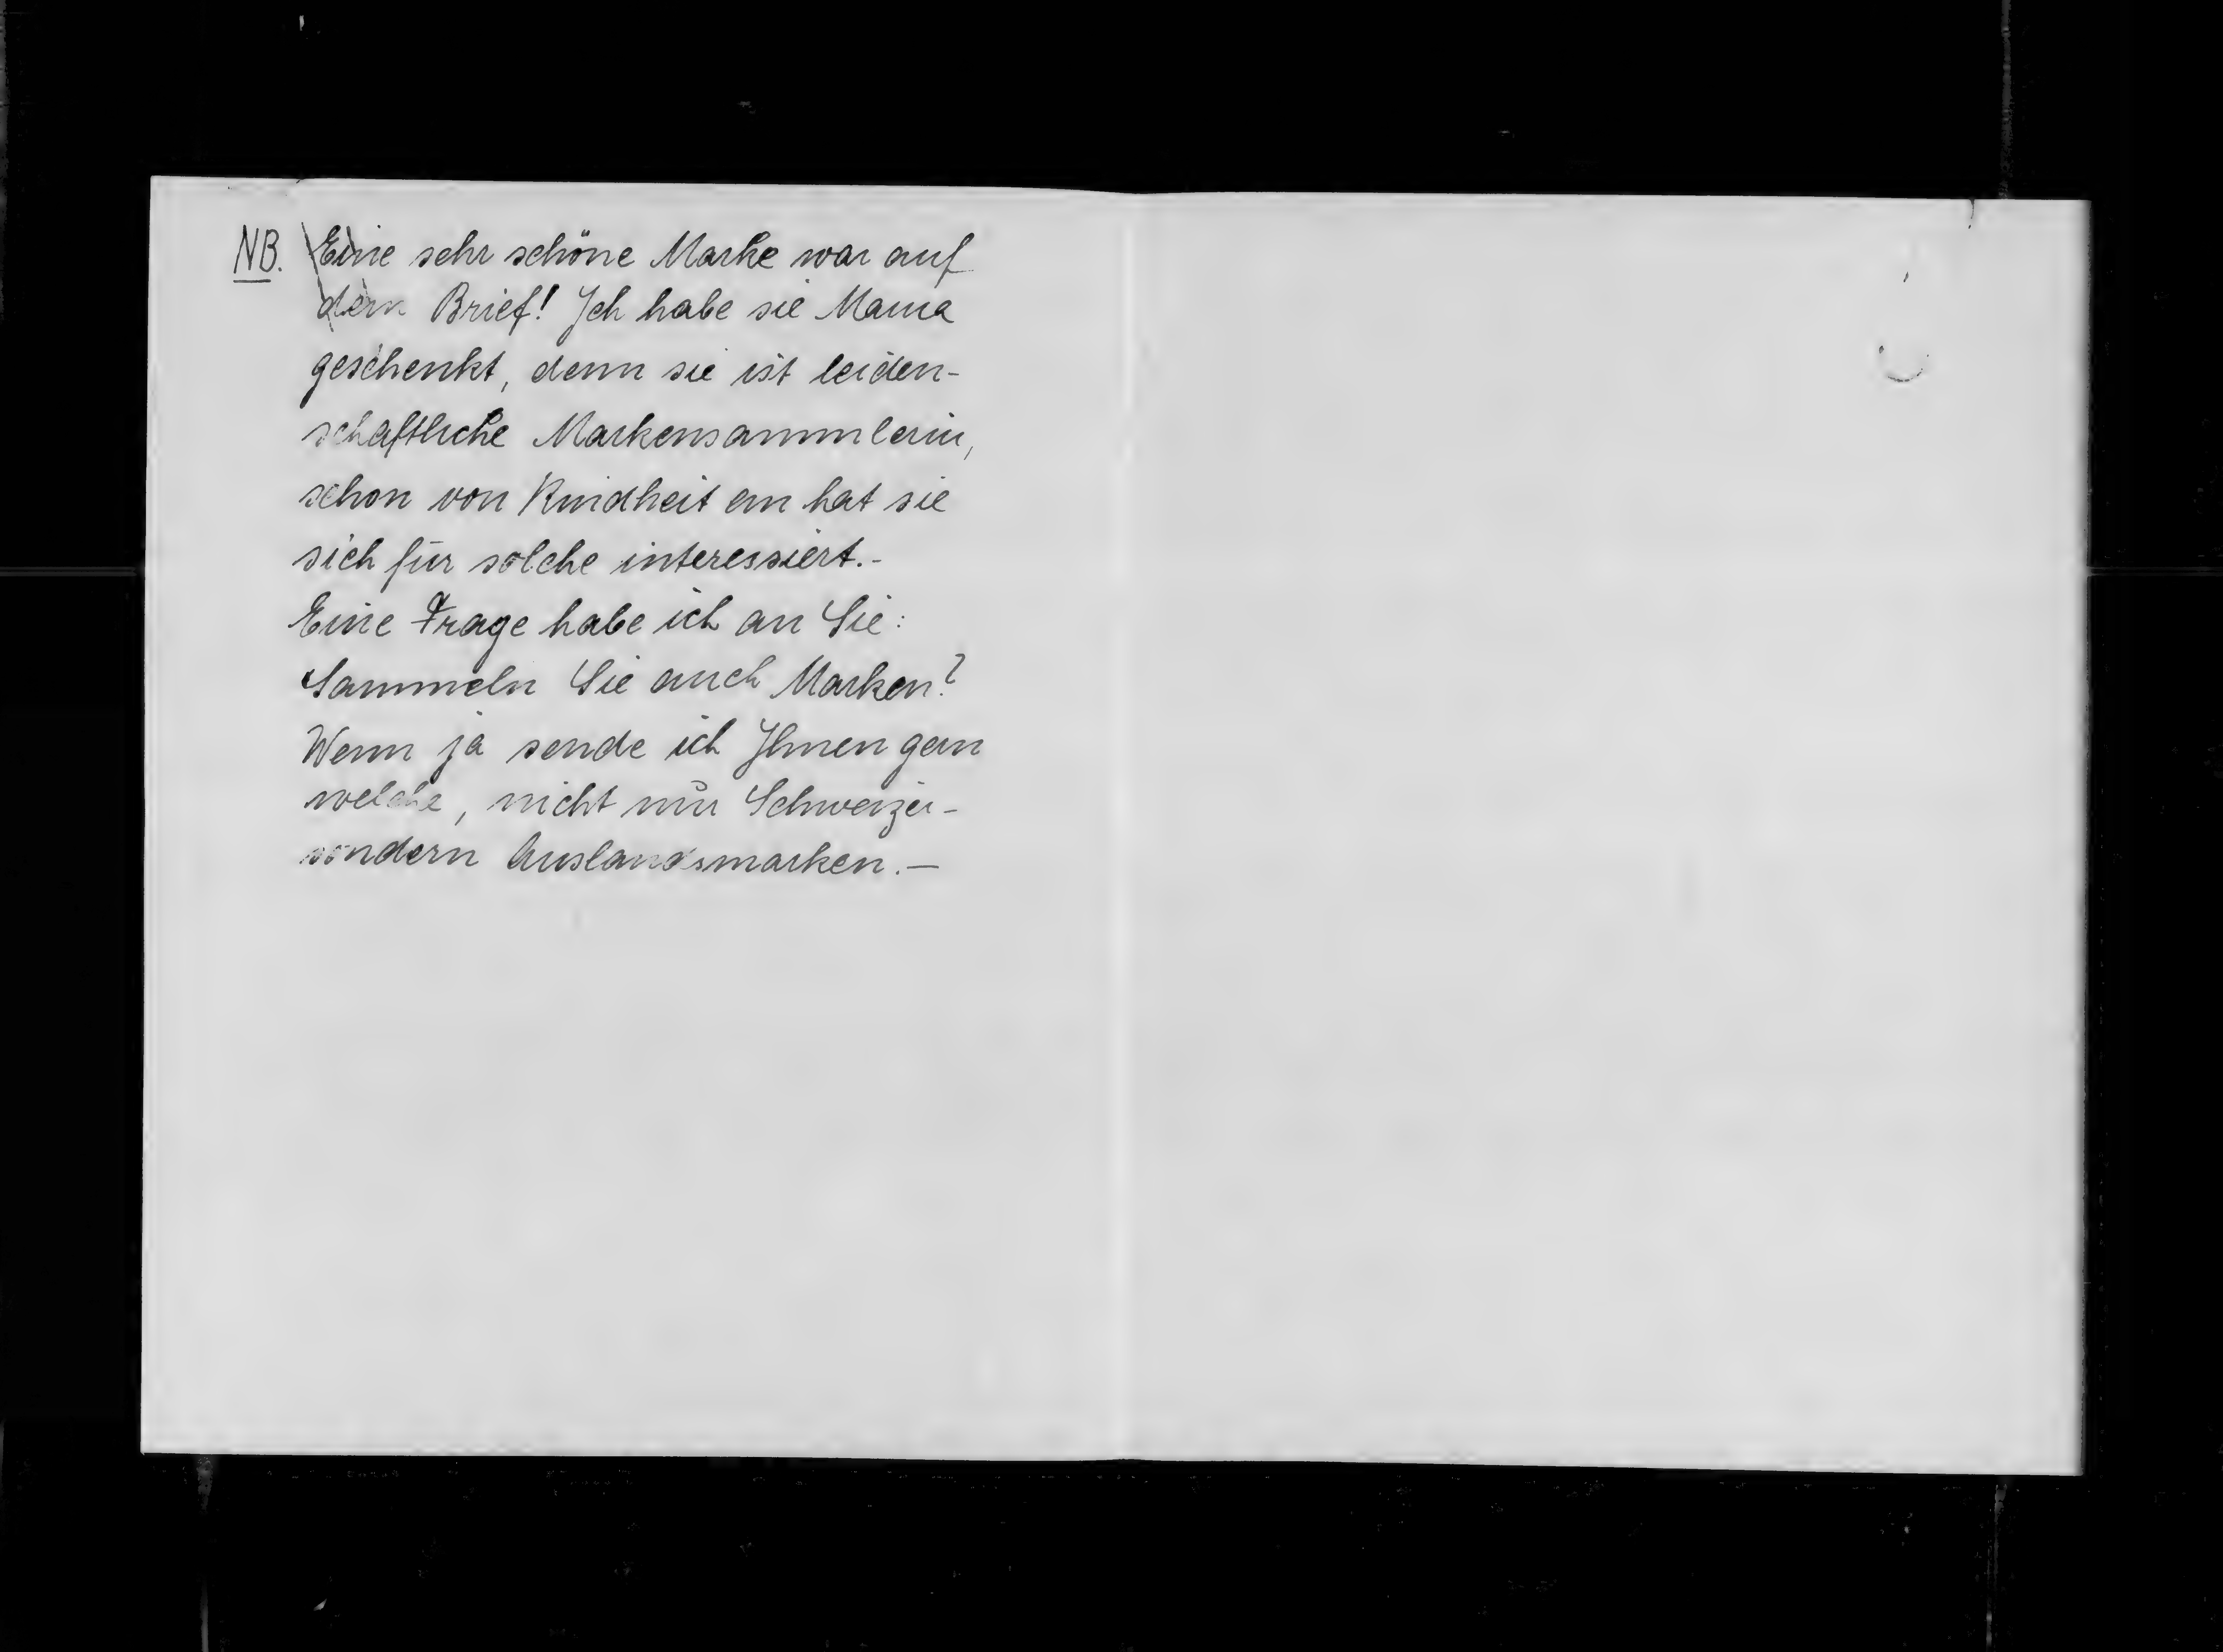 NB. Eine sehr schöne Marke war auf
dem Brief! Ich habe sie Mama
geschenkt, denn sie ist leiden-
schaftliche Markensammlerin,
schon von Kindheit an hat sie
sich für solche interessiert.-
Eine Frage habe ich an Sie:
Sammeln Sie auch Marken?
Wenn ja sende ich Ihnen gern
welche, nicht nur Schweizer-
sondern Auslandsmarken.—